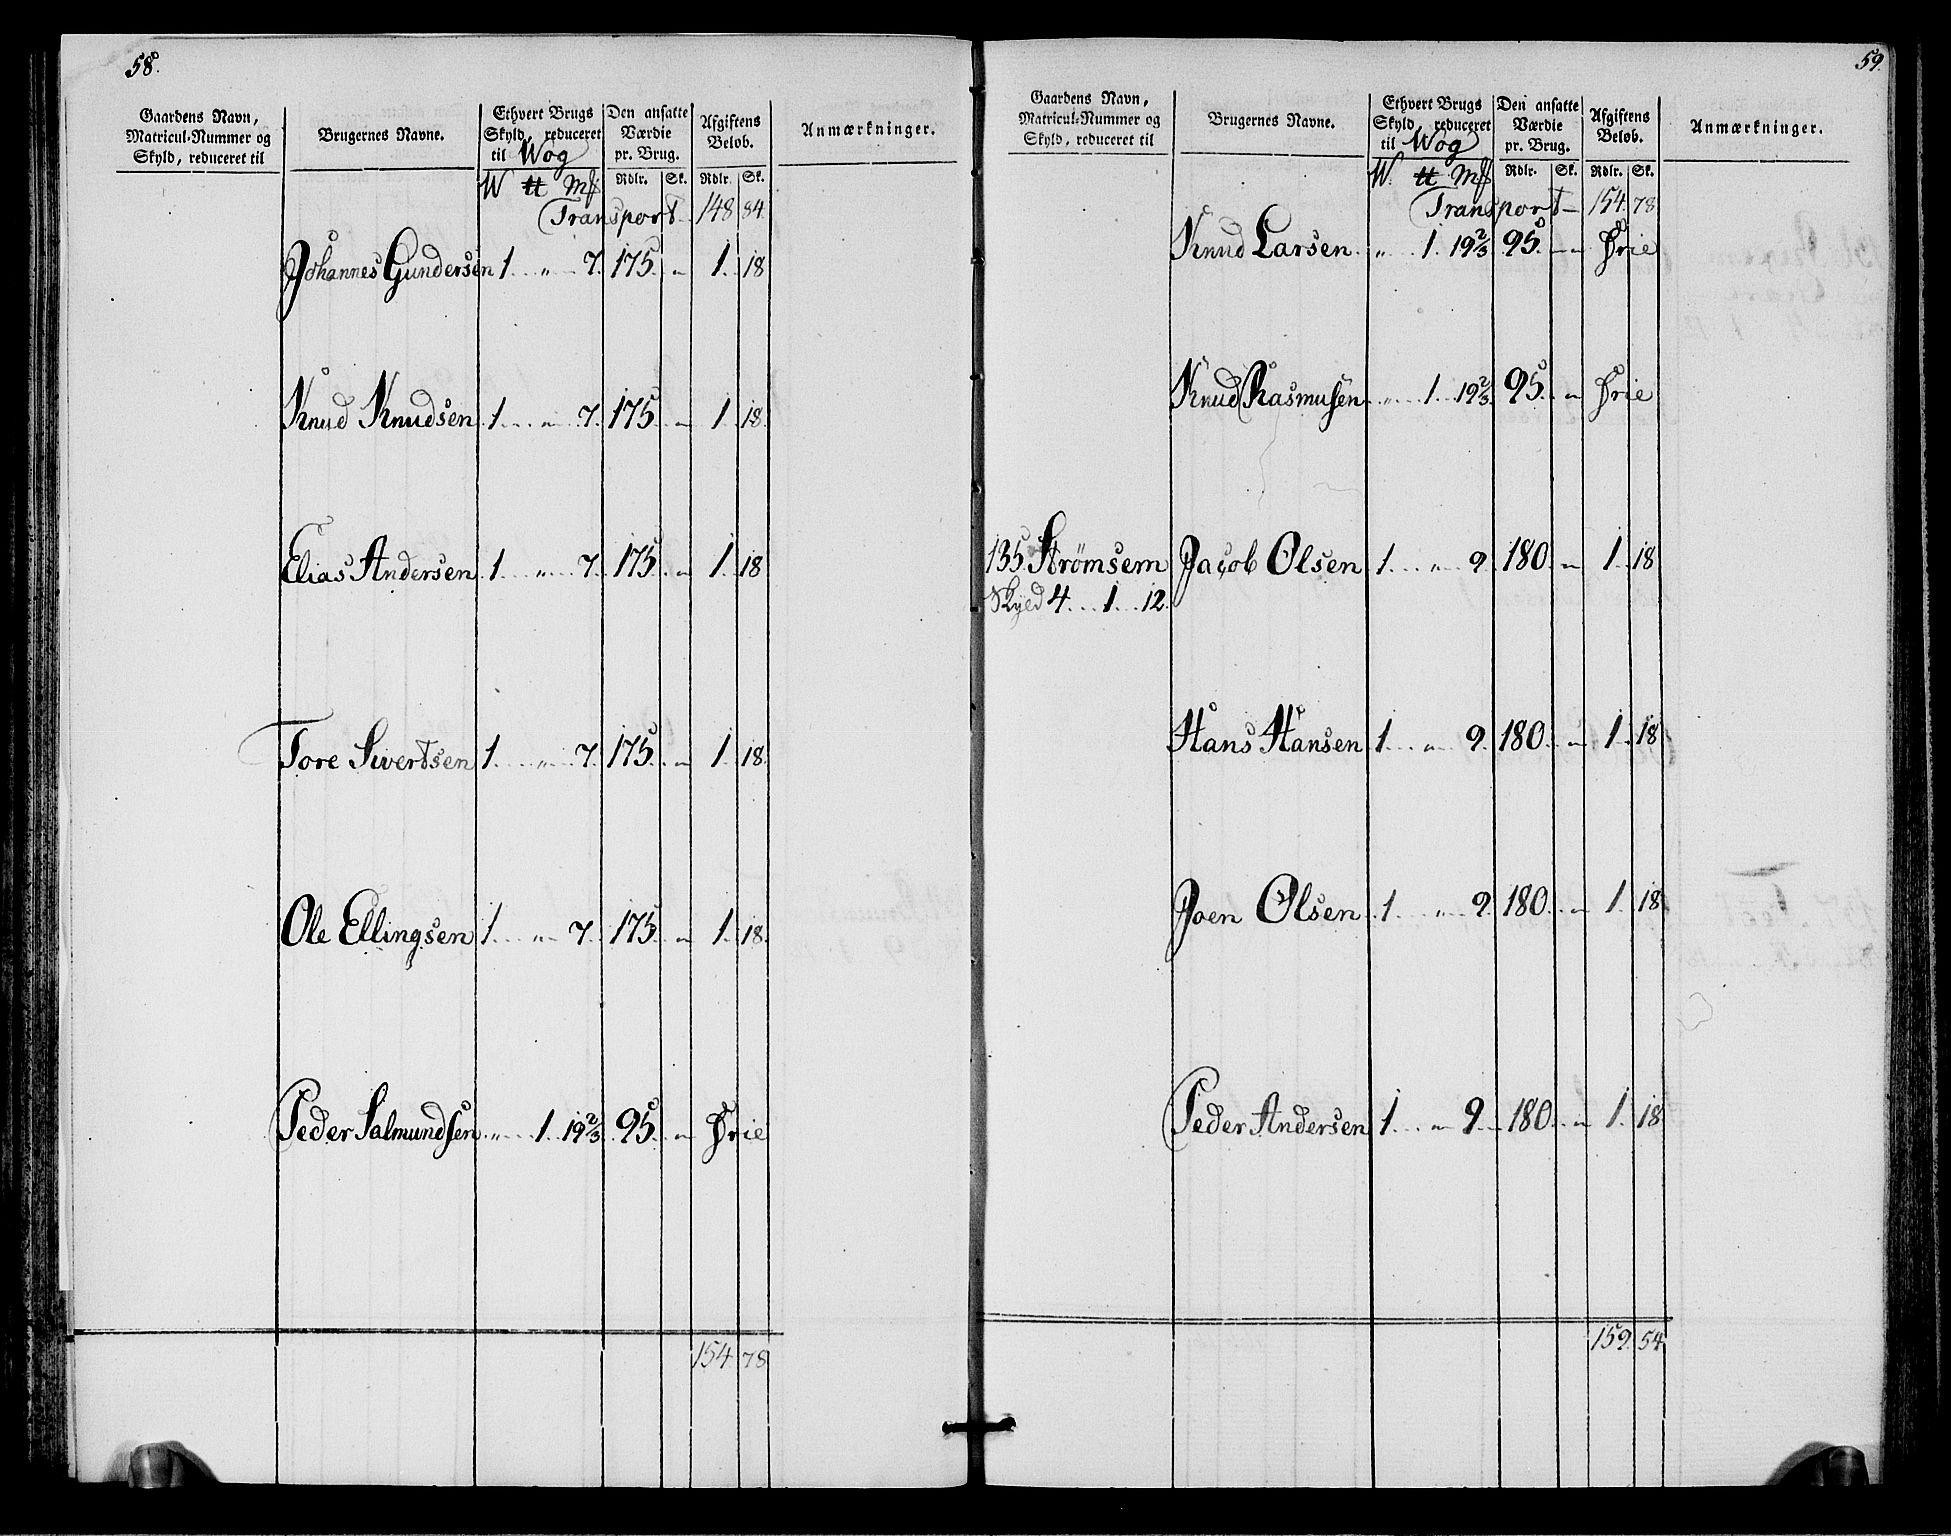 58.
Gaardens Navn, Matricul-Nummer og Skyld, reduceret til
Brugernes Navne.
Ethvert Brugs Skyld, reduceret til Wog
Den ansatte Værdie pr. Brug.
Afgiftens Beløb.
Anmærkninger.
W ℔ Mk Rdlr. Sk. Rdlr. Sk.
Transport 148 84
Johannes Gundersen 1 " 7. 175. " 1. 18
Knud Knudsen 1 " 7. 175. " 1 18.
Elias Andersen 1 " 7. 175. " 1. 18
Tore Sivertsen 1 " 7. 175. " 1. 18.
Ole Ellingsen 1 " 7. 175. " 1. 18.
Peder Salmundsen " 1 19 2/3. 95. " Frie
154 78
59.
Gaardens Navn, Matricul-Nummer og Skyld, reduceret til
Brugernes Navne.
Ethvert Brugs Skyld, reduceret til Wog
Den ansatte Værdie pr. Brug.
Afgiftens Beløb.
Anmærkninger.
W. ℔ Mk Rdlr. Sk. Rdlr. Sk.
Transport 154. 78
Knud Larsen " 1. 19 2/3 95. " Frie
Knud Rasmusen " 1 19 2/3. 95. " Frie
135. Strömsem Jacob Olsen 1 " 9. 180. " 1. 18
Skyld 4 1 12.
Hans Hansen 1 " 9. 180. " 1. 18
Joen Olsen 1 " 9. 180. " 1. 18
Peder Andersen 1 " 9 180. " 1. 18
159. 54